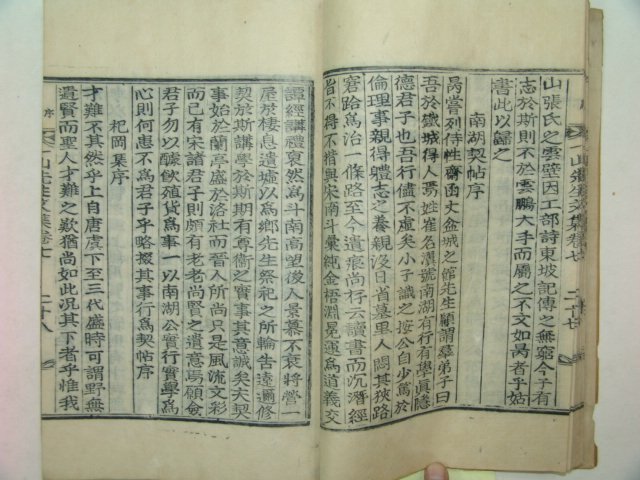 山張氏之雲壁因工部詩東坡記傳之無窮今子有
志於斯則不於雲鵬大手而屬之不文如昺者乎姑
書此以歸之
南湖契帖序
昺嘗列侍性齋函丈盆城之館先生顧謂羣弟子曰
吾於鐵城得人焉姓崔名瀷號南湖有行有學眞隱
德君子也吾行獻不虛矣小子識之按公自少篤於
倫理事親得軆志之養親沒日省墓里人問其狹路
容路爲治一條路至今遺痕尚存云讀書而沉潛經
旨不得不措與宋南斗彙純金梧淵晃運爲道義交
譚經講禮裒然爲斗南高望後人景慕不衰將營一
屋於棲息遺墟以爲鄕先生祭祀之所輪告遠邇修
契於斯講學於斯期有尊衛之實事其意誠矣夫契
事始於蘭亭盛於洛社而晉人所尚只是風流文彩
而已有宋諸君子則頗有老老尚賢之遺意焉願僉
君子勿以醵飮殖貨爲事一以南湖公實行實學爲
心則何患不爲君子乎略掇其事行爲契帖序
杞岡槀序
才難不其然乎上自唐虞下至三代盛時可謂野無
遺賢而聖人才難之歎猶尚如此況其下者乎惟我
序
山先生文集卷七
二十七
序
山先生文集卷七
二十八